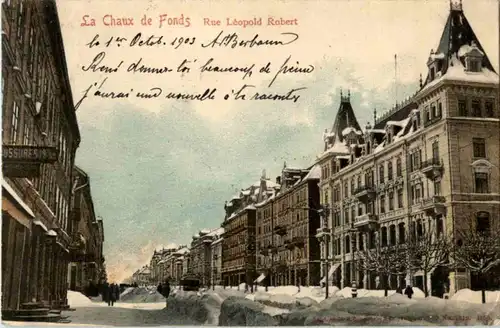 La Chaux de Fonds Rue Léopold Robert
le 1er Octob. 1903
René donner toi beaucoup de peine
j'aurai une nouvelle à te raconter